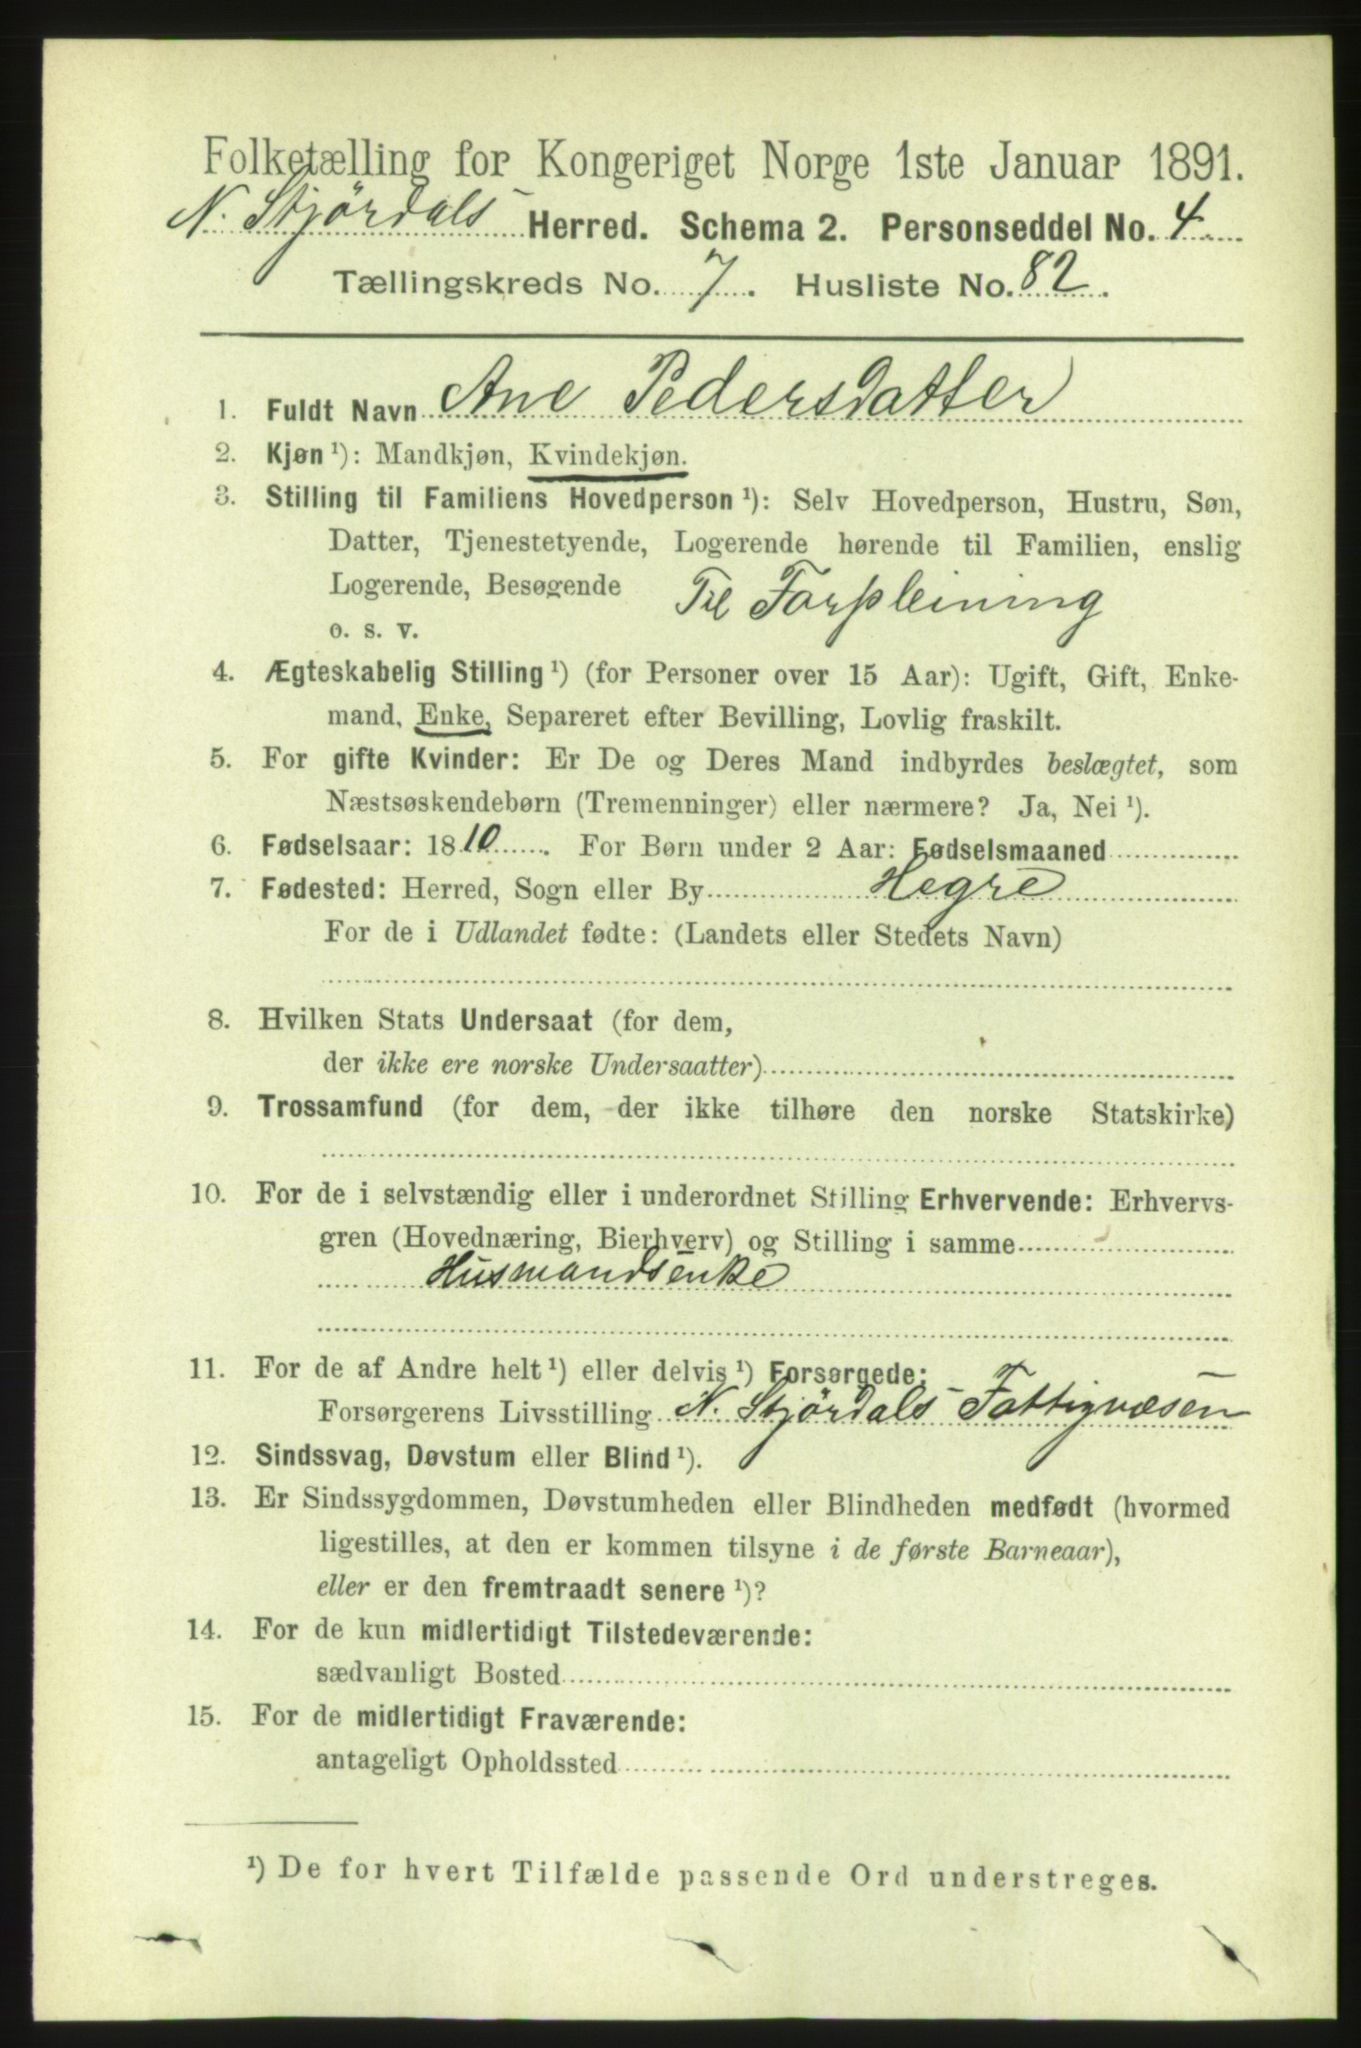 Folketælling for Kongeriget Norge 1ste Januar 1891.
N. Stjørdals Herred. Schema 2. Personseddel No. 4
Tællingskreds No. 7. Husliste No. 82.
1. Fuldt Navn Ane Pedersdatter
2. Kjøn ¹): Mandkjøn, Kvindekjøn.
3. Stilling til Familiens Hovedperson ¹): Selv Hovedperson, Hustru, Søn,
Datter, Tjenestetyende, Logerende hørende til Familien, enslig
Logerende, Besøgende Til Forpleining
o. s. v.
4. Ægteskabelig Stilling ¹) (for Personer over 15 Aar): Ugift, Gift, Enke-
mand, Enke, Separeret efter Bevilling, Lovlig fraskilt.
5. For gifte Kvinder: Er De og Deres Mand indbyrdes beslægtet, som
Næstsøskendebørn (Tremenninger) eller nærmere? Ja, Nei ¹).
6. Fødselsaar: 1810. For Børn under 2 Aar: Fødselsmaaned
7. Fødested: Herred, Sogn eller By Hegre
For de i Udlandet fødte: (Landets eller Stedets Navn)
8. Hvilken Stats Undersaat (for dem,
der ikke ere norske Undersaatter)
9. Trossamfund (for dem, der ikke tilhøre den norske Statskirke)
10. For de i selvstændig eller i underordnet Stilling Erhvervende: Erhvervs-
gren (Hovednæring, Bierhverv) og Stilling i samme
Husmandsenke
11. For de af Andre helt ¹) eller delvis ¹) Forsørgede:
Forsørgerens Livsstilling N. Stjørdals Fattigvæsen
12. Sindssvag, Døvstum eller Blind ¹).
13. Er Sindssygdommen, Døvstumheden eller Blindheden medfødt (hvormed
ligestilles, at den er kommen tilsyne i de første Barneaar),
eller er den fremtraadt senere ¹)?
14. For de kun midlertidigt Tilstedeværende:
sædvanligt Bosted
15. For de midlertidigt Fraværende:
antageligt Opholdssted
¹) De for hvert Tilfælde passende Ord understreges.